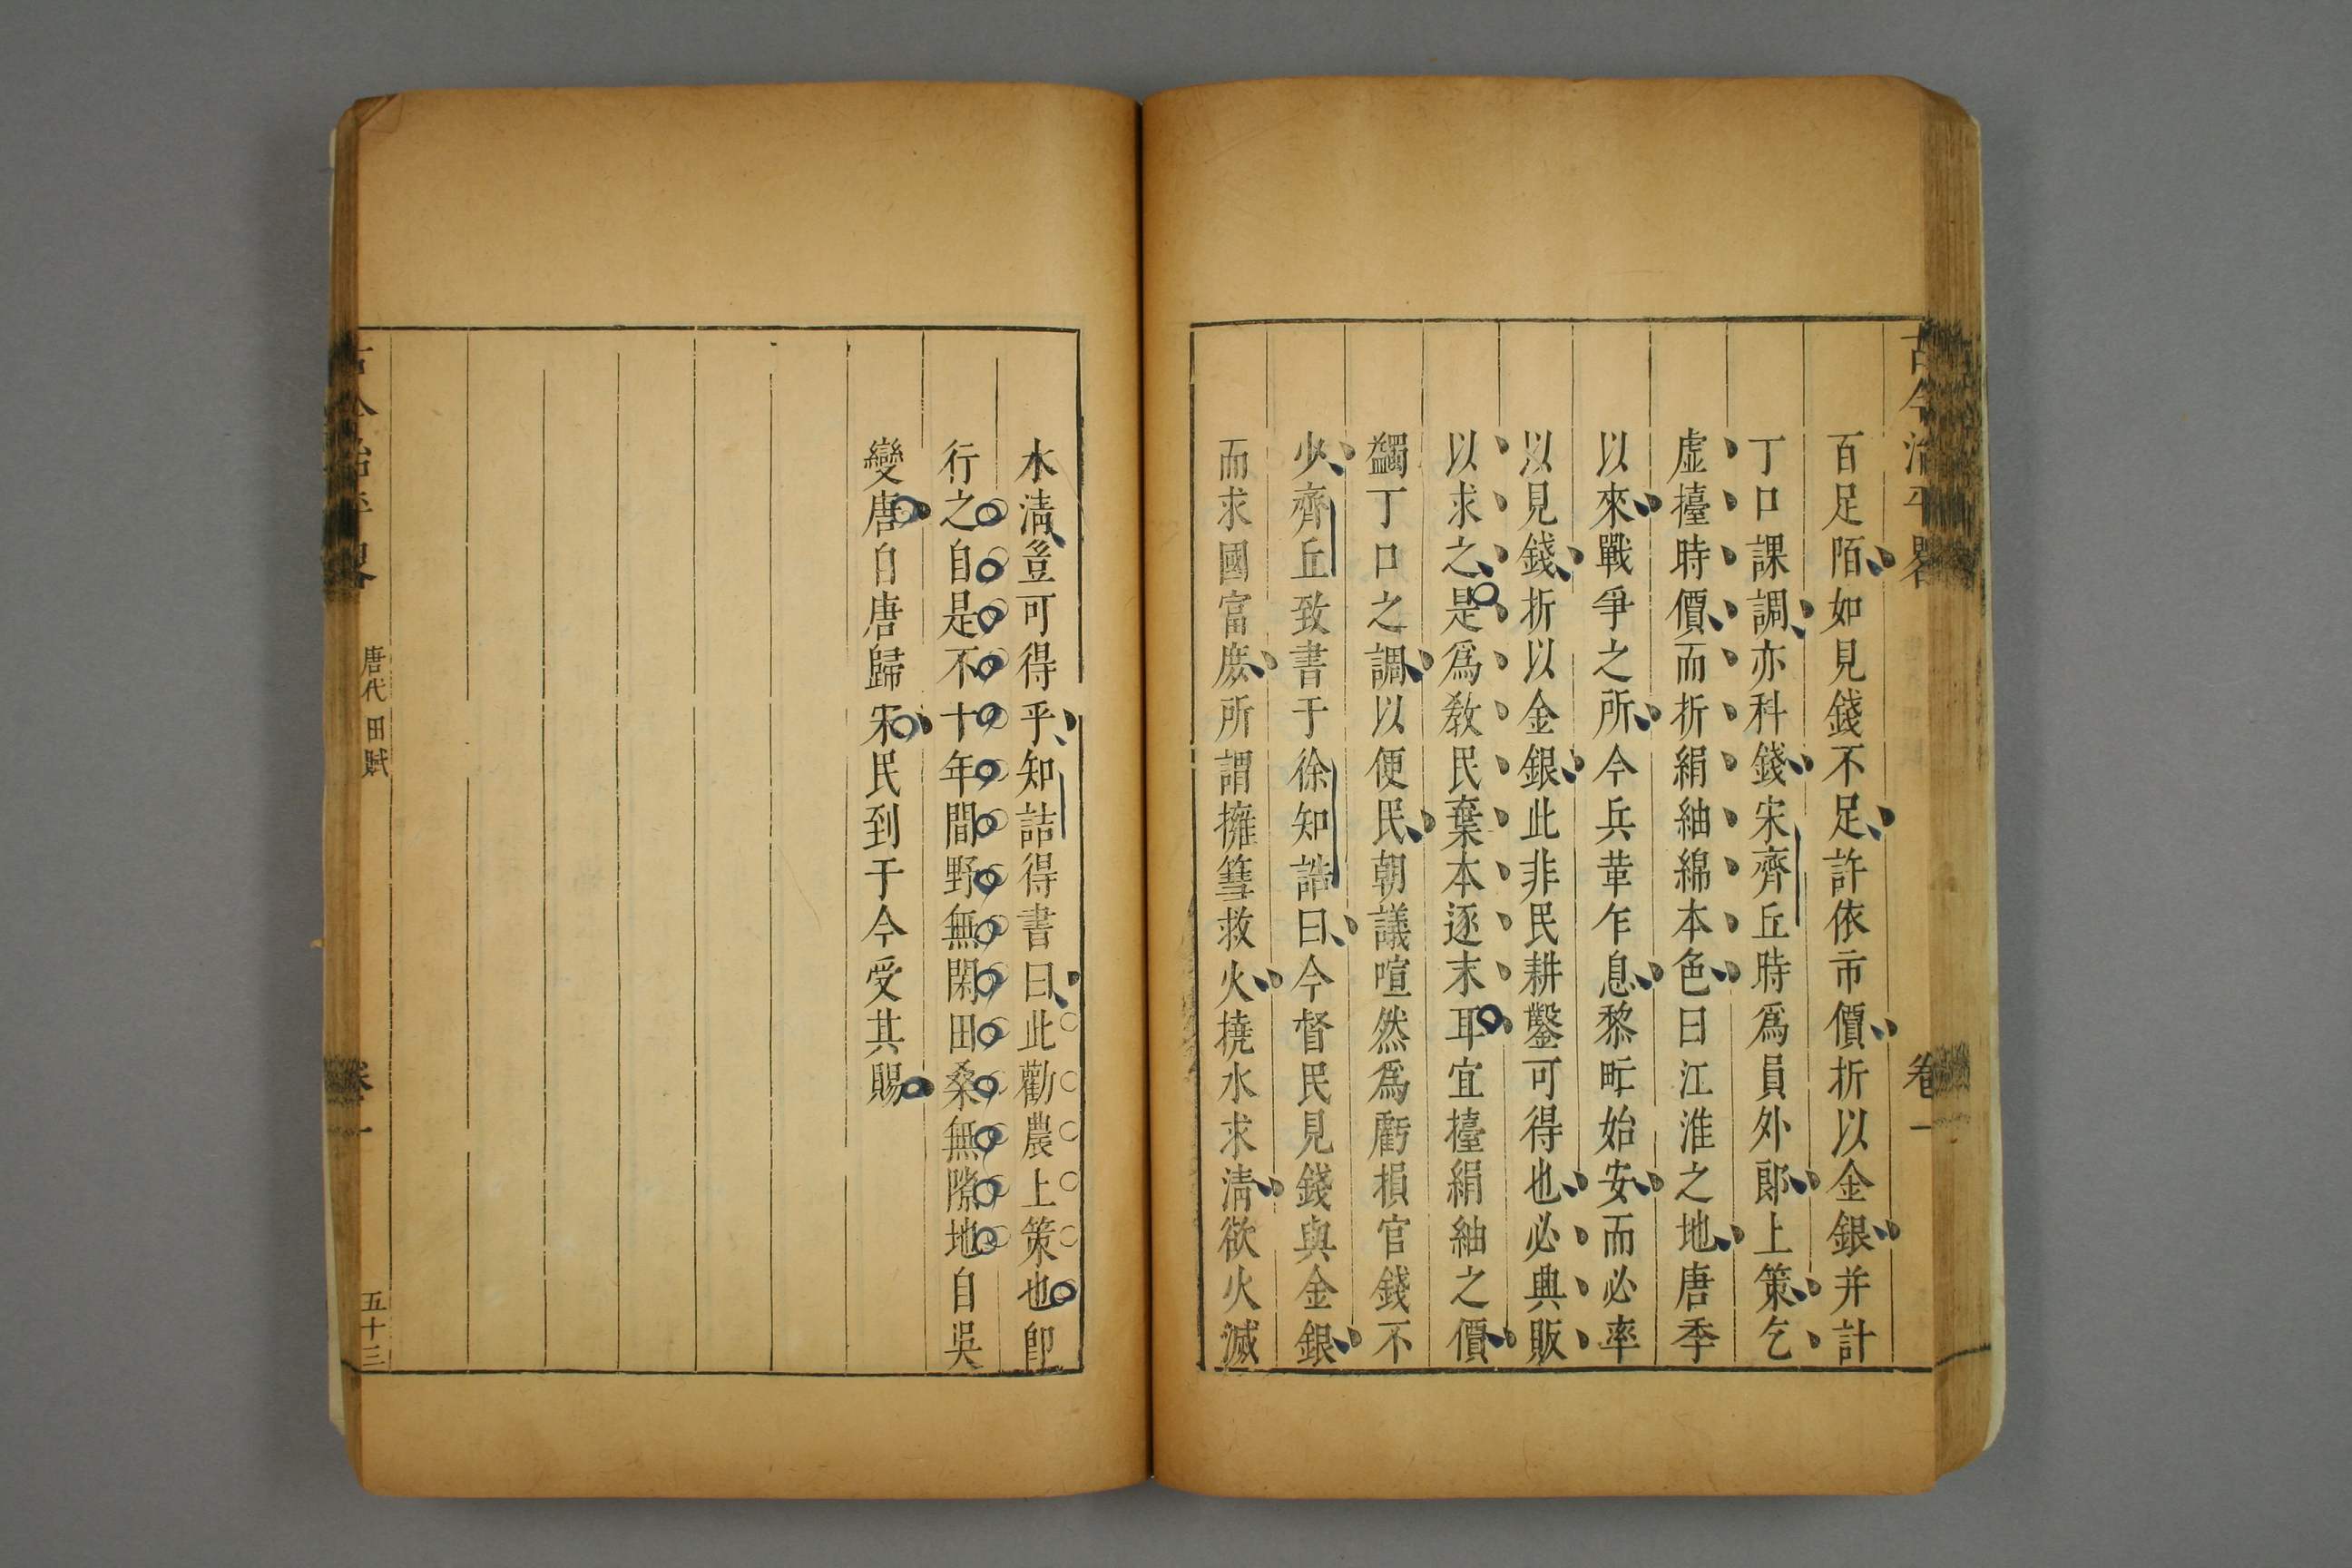 古今治平畧
卷一
百足陌如見錢不足許依市價折以金銀并計
丁口課調亦科錢宋齊丘時爲員外郎上策乞
虛擡時價而折絹紬綿本色曰江淮之地唐季
以來戰爭之所今兵革乍息黎甿始安而必率
以見錢折以金銀此非民耕鑿可得也必興販
以求之是爲敎民棄本逐末耳宜擡絹紬之價
蠲丁口之調以便民朝議喧然爲虧損官錢不
少齊丘致書于徐知誥曰今督民見錢與金銀
而求國富庶所謂擁篲救火撓水求淸欲火滅
水淸豈可得乎知詰得書曰此勸農上策也卽
行之自是不十年間野無閑田桑無隙地自吳
變唐自唐歸宋民到于今受其賜
古今治平畧
唐代 田賦
卷一
五十三